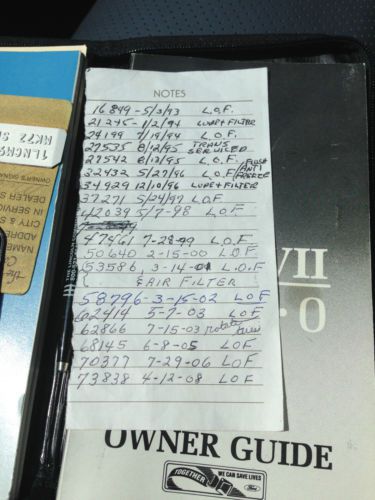 NOTES
16849 - 5/3/93 L.O.F.
21245 - 1/2/94 LUBE + FILTER
24199 7/19/94 L.O.F.
27535 8/12/95 TRANS SERVICED
27542 8/13/95 L.O.F. FLUSH
32432 5/27/96 L.O.F. ANTI FREEZE
34929 12/10/96 LUBE + FILTER
37271 5/24/97 L.O.F
42039 5/7-98 LOF
47461 7-28-99 L.O.F.
50640 2-15-00 L.O.F.
53586, 3-14-01 L.O.F
& AIR FILTER
58796 - 3-15-02 LOF
62414 5-7-03 LOF
62866 7-15-03 rotate tires
68145 6-8-05 LOF
70377 7-29-06 LOF
73838 4-12-08 LOF
1LNCM9
MK72 5
OWNER'S SIGNA
DEALER S
IN SERVIC
CITY & S
ADDRE
NAME
VII
OWNER GUIDE
TOGETHER
WE CAN SAVE LIVES
Ford